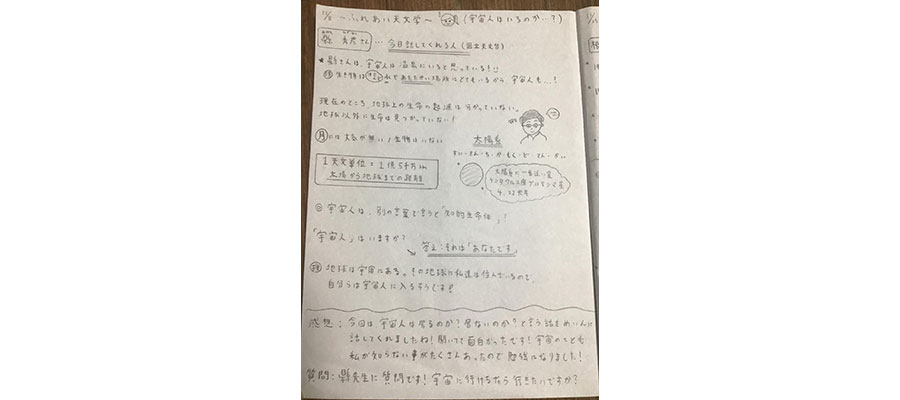 11/8 〜ふれあい天文学〜 (宇宙人はいるのか…?)
縣 秀彦さん … 今日話してくれる人 (国立天文台)
★ 縣さんは、宇宙人は にいると思っている!!
理 生き物は 水と あたたかい場所にどこでもいるから、宇宙人も…!
現在のところ、地球上の生命の起源は分かっていない。
地球以外に生命は見つかっていない!
月には大気が無い / 生物はいない
太陽系
すい・きん・ち・か・もく・ど・てん・かい
1天文単位=1億5千万km
太陽から地球までの距離
太陽系に一番近い星
ケンタウルス座プロキシマ星
4.22光年
◎ 宇宙人は、別の言葉で言うと「知的生命体」!
「宇宙人」はいますか?
答え:それは「あなたです」
理 地球は宇宙にある。その地球に私達は住んでいるので、
自分らは宇宙人に入るそうです!!
感想: 今回は宇宙人は居るのか?居ないのか?と言う話をめい人に
話してくれましたね!聞いてて面白かったです!宇宙のことを
私が知らない事がたくさんあったので勉強になりました!
質問: 縣先生に質問です!宇宙に行けるなら行きたいですか?
11/8